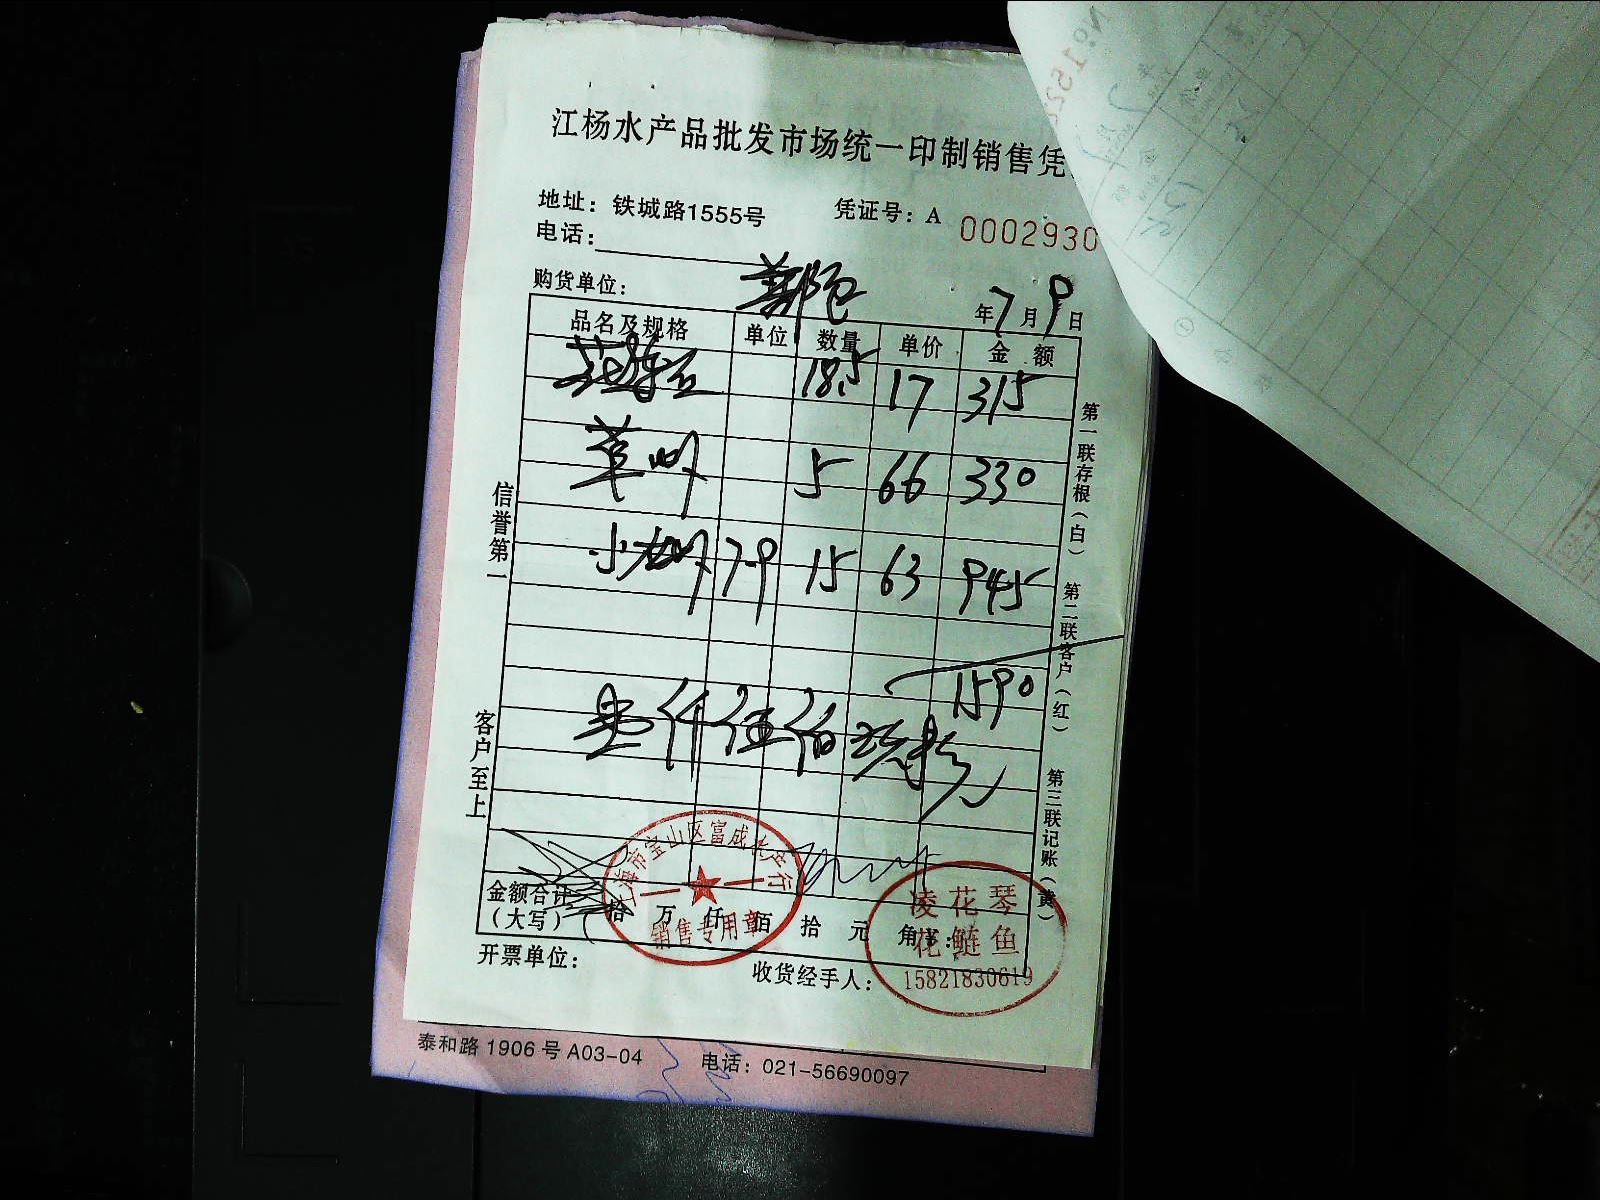 江杨水产品批发市场统一印制销售凭
地址：铁城路1555号
凭证号：A 0002930
电话：
购货单位：
年7月9日
品名及规格 单位 数量 单价 金额
18.5 17 315
草虾 5 66 330
小 7-9 15 63 945
1590
壹仟伍佰玖拾
金额合计（大写） 拾 万 仟 佰 拾 元 角
开票单位：
收货经手人：
上海市宝山区富成水产行
销售专用章
凌花琴
花鲢鱼
15821830619
信誉第一
客户至上
第一联存根（白）
第二联客户（红）
第三联记账（黄）
泰和路 1906 号 A03-04
电话：021-56690097